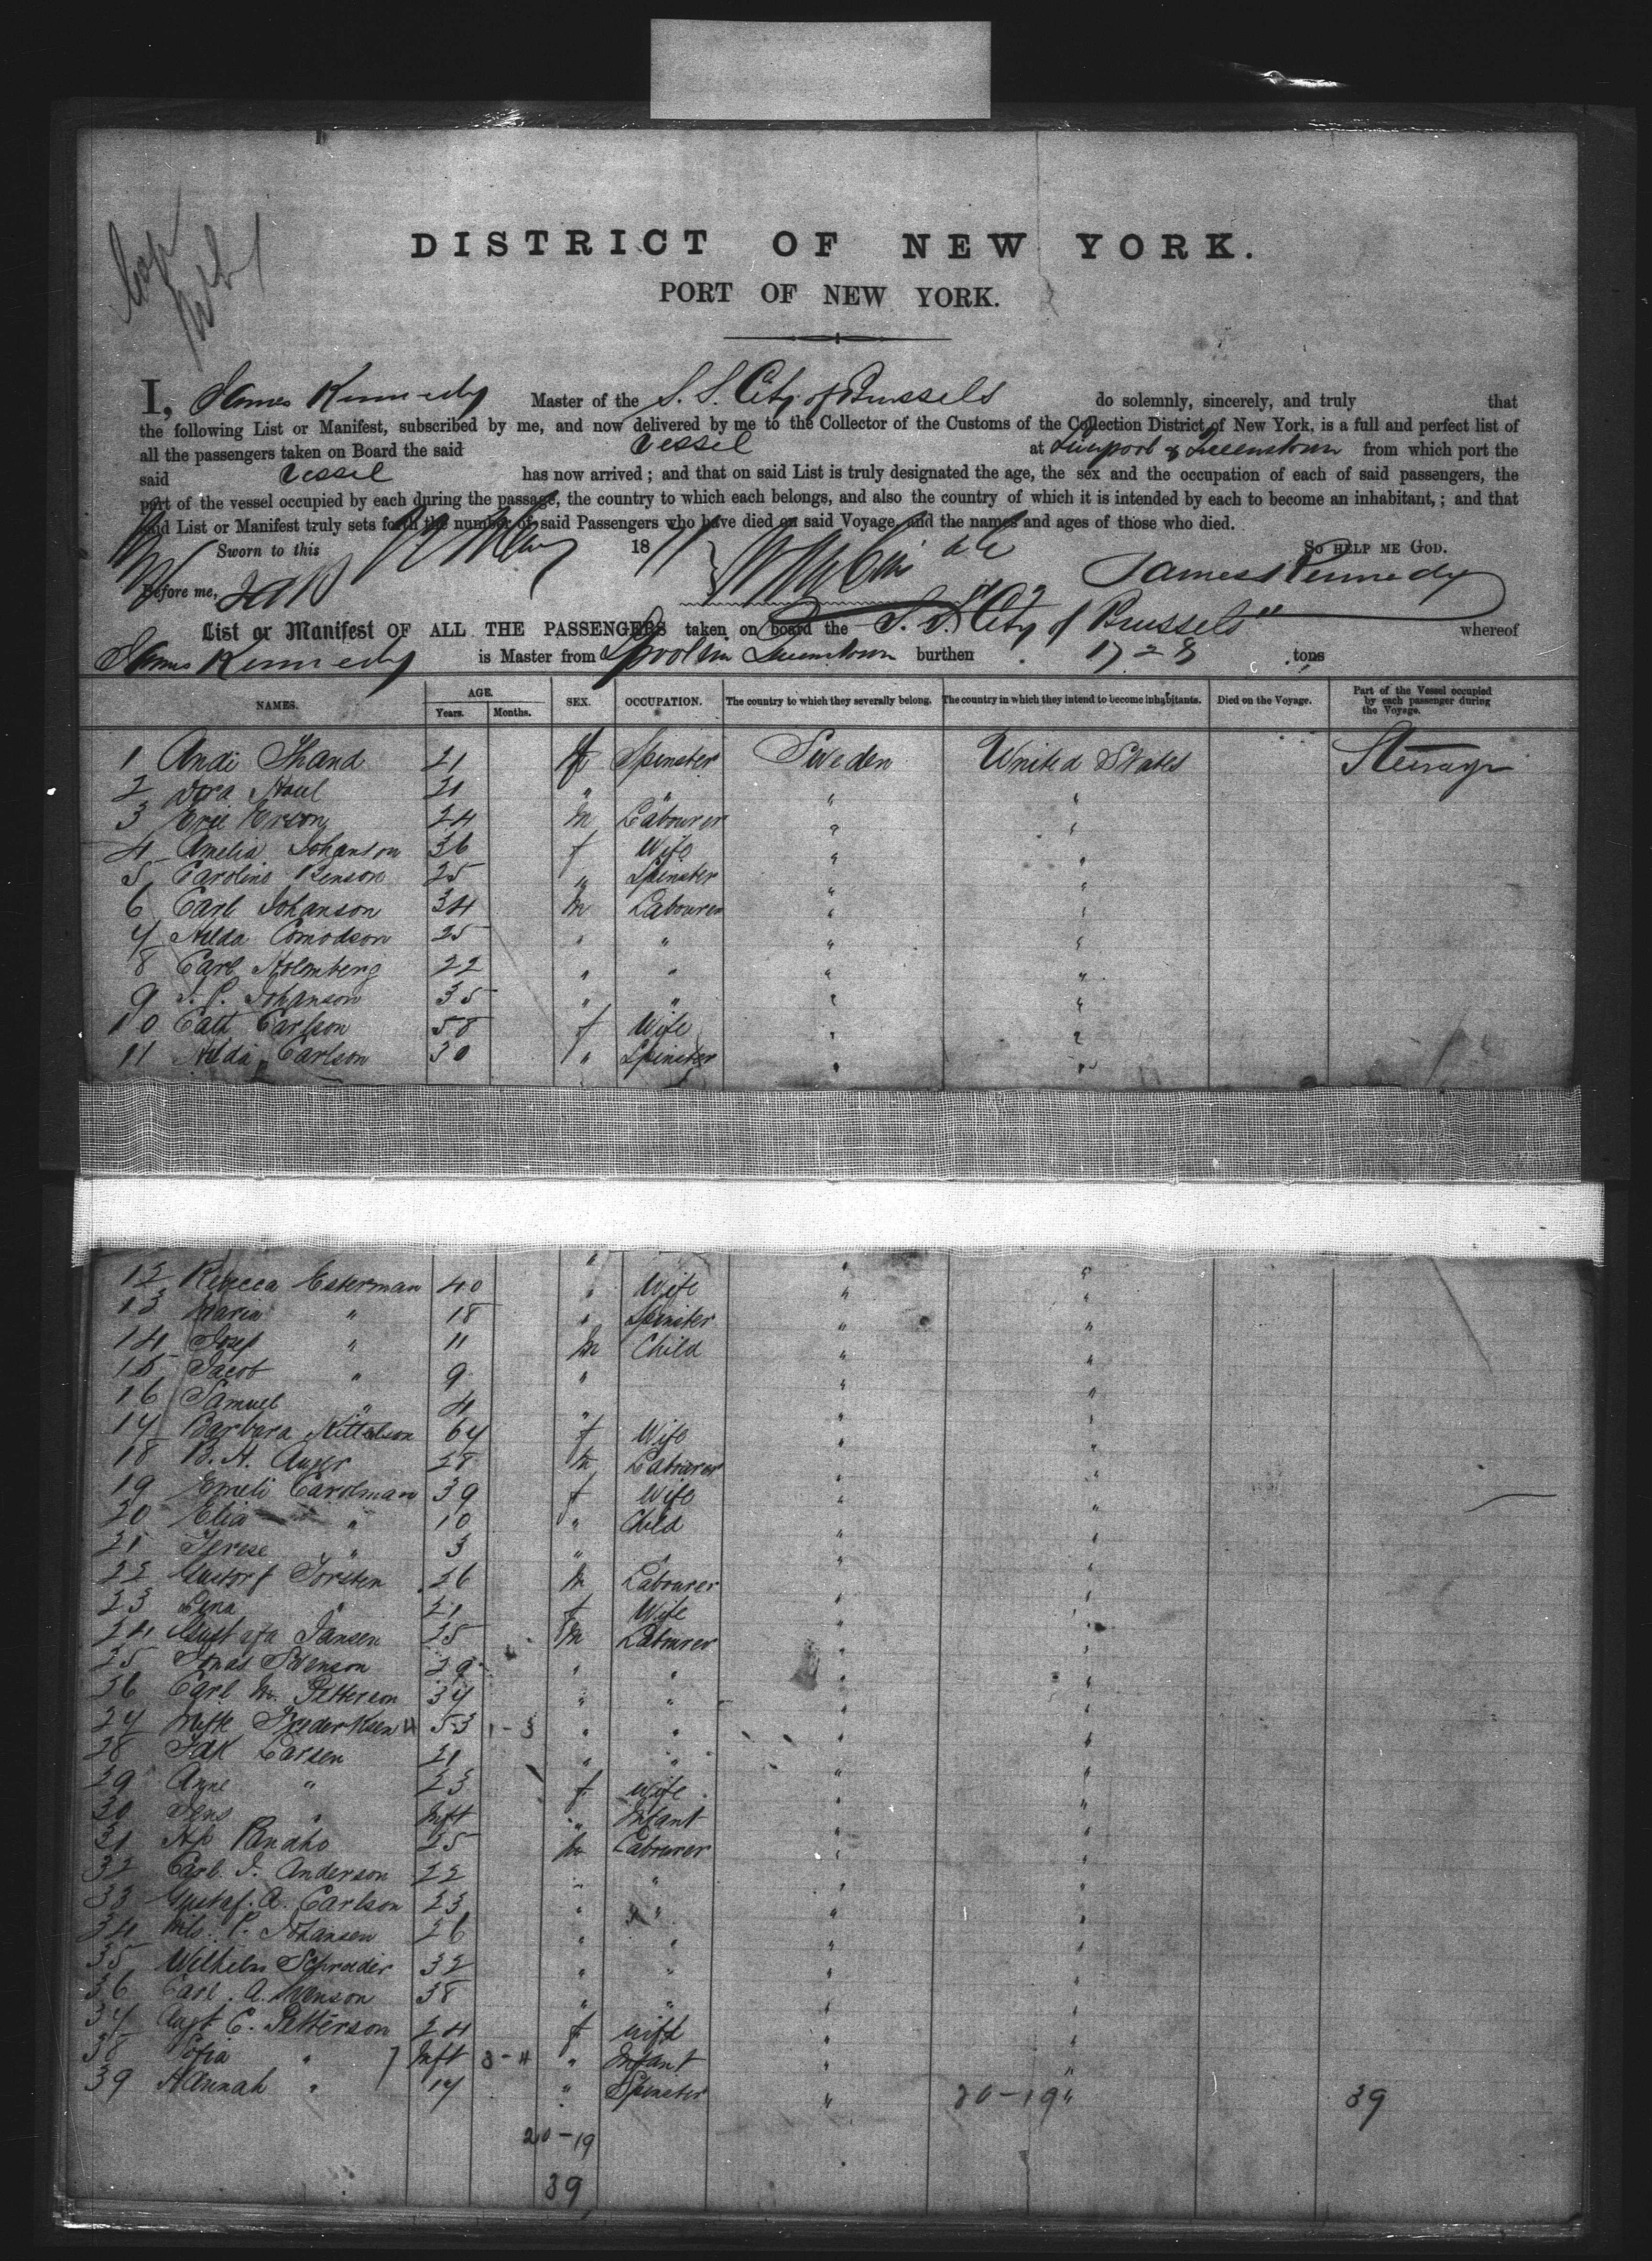 DISTRICT OF NEW YORK.
PORT OF NEW YORK.
I, James Kennedy Master of the S. S. City of Brussels do solemnly, sincerely, and truly that
the following List or Manifest, subscribed by me, and now delivered by me to the Collector of the Customs of the Collection District of New York, is a full and perfect list of
all the passengers taken on Board the said Vessel at Liverpool & Queenstown from which port the
said Vessel has now arrived; and that on said List is truly designated the age, the sex and the occupation of each of said passengers, the
part of the vessel occupied by each during the passage, the country to which each belongs, and also the country of which it is intended by each to become an inhabitant,; and that
said List or Manifest truly sets forth the number of said Passengers who have died on said Voyage, and the names and ages of those who died.
Sworn to this May 1871 So HELP ME GOD.
Before me, James Kennedy
List or Manifest OF ALL THE PASSENGERS taken on board the S. S. "City of Brussels" whereof
James Kennedy is Master from Queenstown burthen 1728 tons
NAMES. AGE. Years. Months. SEX. OCCUPATION. The country to which they severally belong. The country in which they intend to become inhabitants. Died on the Voyage. Part of the Vessel occupied by each passenger during the Voyage.
1 Andi Thand 21 f Spinster Sweden United States Steerage
2 Dora 21 " " " "
3 Eric Erson 24 m Labourer " "
4 Amelia Johanson 36 f Wife " "
5 Caroline Benson 25 " Spinster " "
6 Carl Johanson 34 m Labourer " "
7 Hilda 25 " " " "
8 Carl Holmberg 22 " " " "
9 J. P. Johanson 35 " " " "
10 Cath Carlson 58 f Wife " "
11 Hilda Carlson 30 " Spinster " "
12 Rebecca Esterman 40 " Wife " "
13 Maria " 18 " Spinster " "
14 Josef " 11 m Child " "
15 Jacob " 9 " " "
16 Samuel " 4 " " "
17 Barbara Kittelson 67 f Wife " "
18 B. H. Auger 28 m Labourer " "
19 Emeli Carolman 39 f Wife " "
20 Elia " 10 " Child " "
21 Terese " 3 " " " "
22 Gustorf Torsten 26 m Labourer " "
23 Lena " 21 f Wife " "
24 Gustafa Jansen 25 m Labourer " "
25 Jonas Swenson 29 " " " "
26 Carl M. Petterson 37 " " " "
27 Frederiksen 53 1-3 " " " "
28 Larsen 21 " " " "
29 Anne " 23 f Wife " "
30 Jens " Inft " Infant " "
31 25 m Labourer " "
32 Carl J. Anderson 22 " " " "
33 Gustaf. A. Carlson 23 " " " "
34 Nils. P. Johansen 26 " " " "
35 Wilhelm Schroder 32 " " " "
36 Carl. A. Swenson 38 " " " "
37 Augt C. Petterson 24 f wife " "
38 Sofia " Inft 3-4 " Infant " "
39 Hannah " 17 " Spinster " 20-19 " 39
20-19
39